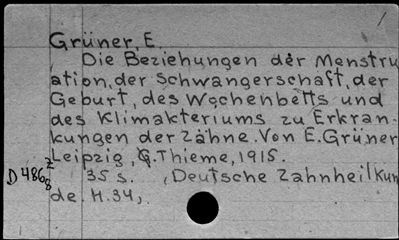 Grüner, E.
Die Beziehungen der Menstru
ation, der Schwangerschaft, der
Geburt, des Wochenbetts und
des Klimakteriums zu Erkran-
kungen der Zähne. Von E. Grüner
Leipzig, G. Thieme, 1915.
D 486 z/8 35 s. (Deutsche Zahnheilkun
de. H. 34).